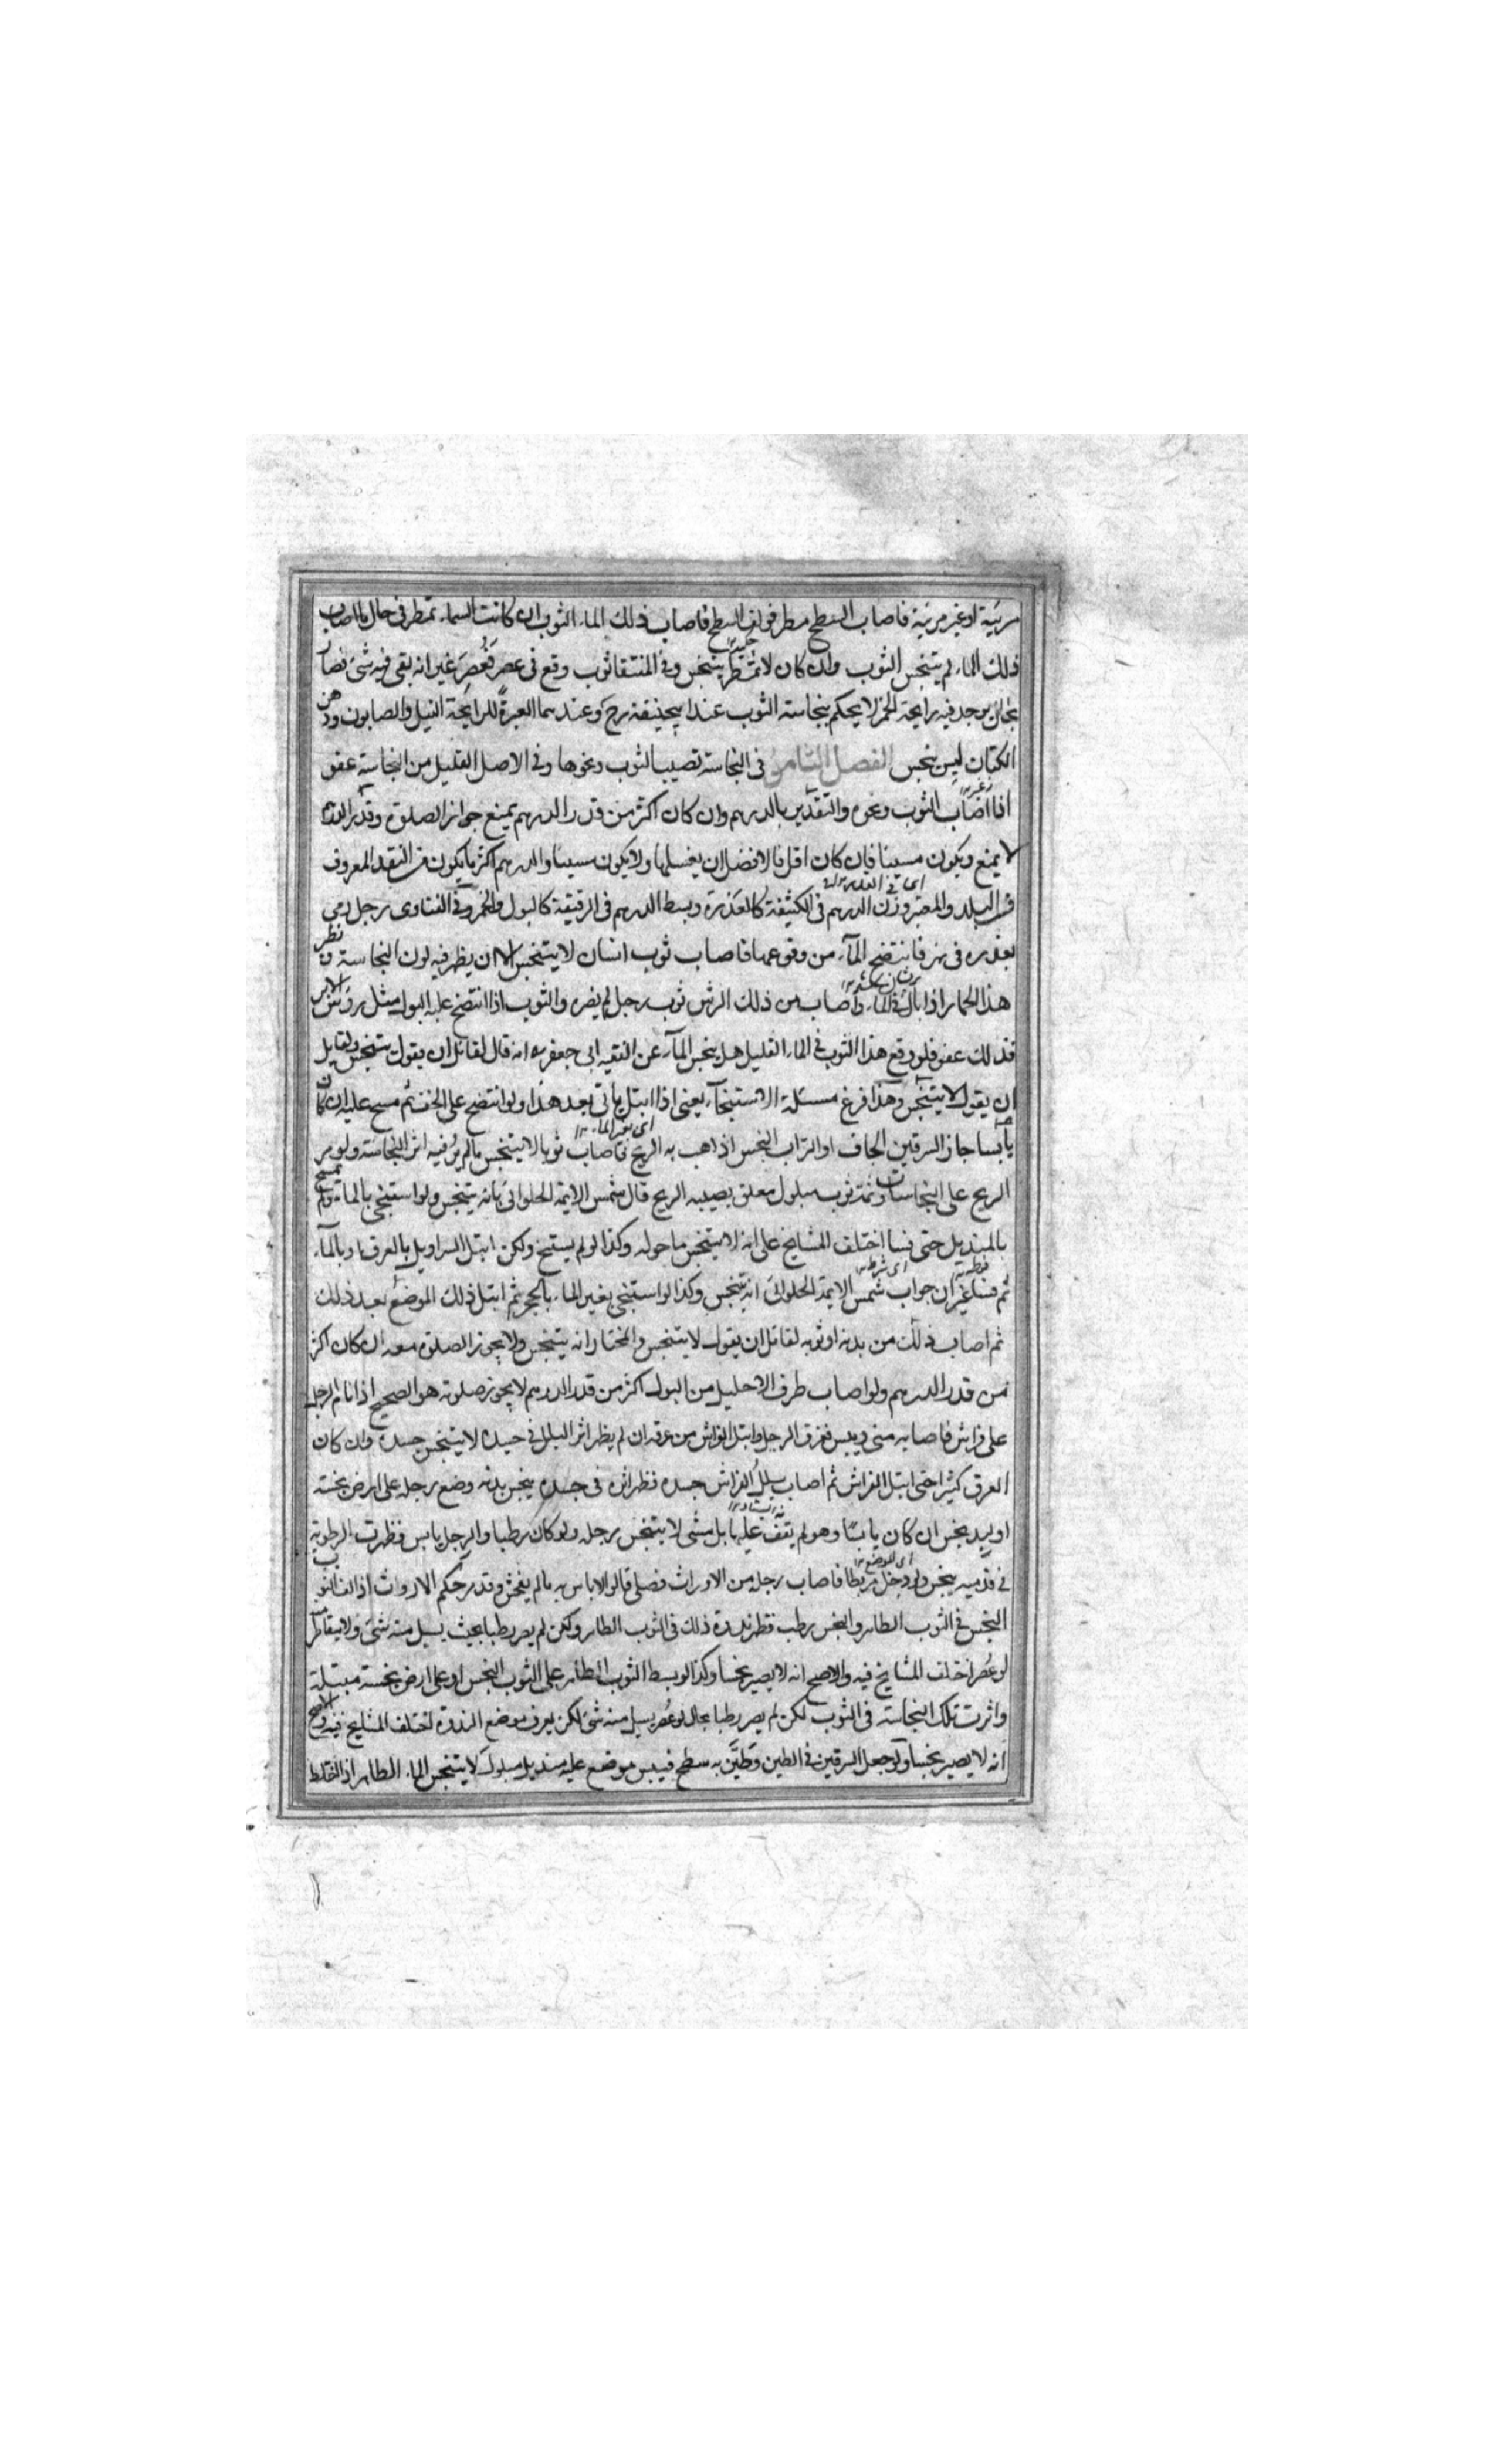 مرئية او غير مرئية فاصاب السطح مطر فوكف السطح فاصاب ذلك الماء الثوب ان كانت السماء تمطر في حال ما اصاب
ذلك الماء لم يتنجس الثوب وان كان لا تمطر يتنجس وفي المنتقا ثوب وقع في عصر فعُصِرَ غير انه بقي فيه شئ فصار
بحال يوجد فيه رايحة الخمر لا يحكم بنجاسة الثوب عند ابيحنيفة رح وعندهما العبرة للرايحة النيل والصابون ودهن
الكتان ليس بنجس الفصل الثامن في النجاسة تصيب الثوب ونحوها وفي الاصل القليل من النجاسة عفو
اذا اصاب الثوب ونحوه والتقدير بالدرهم وان كان اكثر من قدر الدرهم يمنع جواز الصلوة وقدر الدرهم
لا يمنع ويكون مسيئا فان كان اقل فالافضل ان يغسلها ولا يكون مسيئا والدرهم اكثر ما يكون من النقد المعروف
في البلد والمعتبر وزن الدرهم في الكثيفة كالعذرة وبسط الدرهم في الرقيقة كالبول والخمر وفي الفتاوى رجل رمي
بعذرة في نهر فانتضح الماء من وقوعها فاصاب ثوب انسان لا يتنجس الا ان يظهر فيه لون النجاسة و نظر
هذا الحمار اذا بال في الماء واصاب من ذلك الرش ثوب رجل لم يضره والثوب اذا انتضح عليه البول مثل رؤس الابر
فذلك عفو فلو وقع هذا الثوب في الماء القليل هل ينجس الماء عن الفقيه ابي جعفر انه قال لقائل ان يقول يتنجس ولقايل
ان يقول لا يتنجس وهذا فرع مسئلة الاستنجاء يعني اذا ابتل ياتي بعد هذا ولو انتضح على الخف ثم مسح عليه ان كان
يابسا جاز السرقين الجاف او التراب النجس اذ اهب به الريح فاصاب ثوبا لا يتنجس ما لم ير فيه اثر النجاسة ولو مر
الريح على النجاسات وثمة ثوب مبلول معلق يصيبه الريح قال شمس الايمة الحلوائي بانه يتنجس ولو استنجي بالماء ولم يمسح
بالمنديل حتى فسا اختلف المشايخ على انه لا يتنجس ما حوله وكذا لو لم يستنج ولكن ابتل السراويل بالعرق او بالماء
ثم فسا غير ان جواب شمس الايمة الحلوائي انه يتنجس وكذا لو استنجي بغير الماء بالحجر ثم ابتل ذلك الموضع بعد ذلك
ثم اصاب ذلك من بدنه او ثوبه لقائل ان يقول لا يتنجس والمختار انه يتنجس ولا يجوز الصلوة معه ان كان اكثر
من قدر الدرهم ولو اصاب طرف الاحليل من البول اكثر من قدر الدرهم لا يجوز صلوته هو الصحيح اذا نام الرجل
على فراش فاصابه مني ويبس فعرق الرجل وابتل الفراش من عرقه ان لم يظهر اثر البلل في جسده لا يتنجس جسده وان كان
العرق كثيرا حتى ابتل الفراش ثم اصاب بلل الفراش جسده فظهر اثره في جسده ينجس بدنه وضع رجله على ارض نجسة
او لبد نجس ان كان يابسًا وهو لم يقف عليها بل مشى لا يتنجس رجله ولو كان رطبا والرجل يابس فظهرت الرطوبة
في قدميه ينجس ولو دخل مربطا فاصاب رجله من الاوراث فصلى قالوا لا باس به ما لم يفحش وقد مر حكم الارواث اذا لف الثوب
النجس في الثوب الطاهر والنجس رطب فظهر ندوة ذلك في الثوب الطاهر ولكن لم يصر رطبا بحيث يسيل منه شئ ولا يتقاطر
لو عُصر اختلف المشايخ فيه والاصح انه لا يصير نجسا وكذا لو بسط الثوب الطاهر على الثوب النجس او على ارض نجسة مبتلة
واثرت تلك النجاسة في الثوب لكن لم يصر رطبا بحال لو عُصر يسيل منه شئ لكن يعرف موضع الندوة اختلف المشايخ فيه والاصح
انه لا يصير نجسا ولو جعل السرقين في الطين وطيّن به سطح فيبس موضع عليه منديل مبلول لا يتنجس الماء الطاهر اذا اختلط